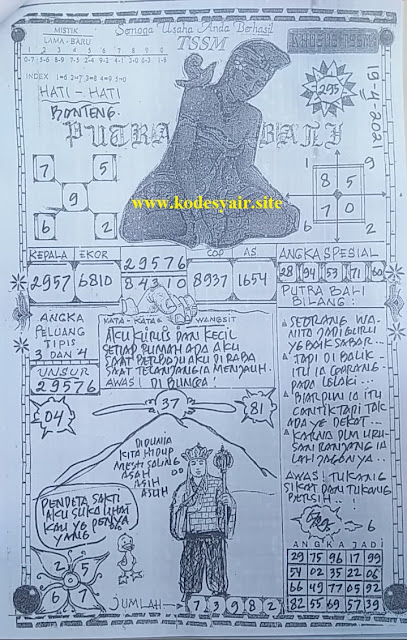 Semoga Usaha Anda Berhasil
TSSM
MISTIK
LAMA - BARU
1 2 3 4 5 6 7 8 9 0
INDEX 1=6 2=7 3=8 4=9 5=0
HATI - HATI
BONTENG
PUTRA BALI
295
19-4-2021
7 5
9
6 2
1 6
8 5
7 0
6 2
www.kodesyair.site
KEPALA EKOR
2957 6810
29576
84310
COP AS
8937 1654
ANGKA SPESIAL
28 94 53 71 60
ANGKA
PELUANG
TIPIS
3 DAN 4
UNSUR
29576
KATA - KATA WANGSIT
AKU KURUS DAN KECIL
SETIAP RUMAH ADA AKU
SAAT AKU DI RABA
SAAT TELANJANG IA MENJAUH.
AWAS! DI BUNGA!
PUTRA BALI
BILANG:
SEORANG WA-
NITA JADI GURU
YG BAIK SABAR...
TAPI DI BALIK
ITU IA GARANG
PADA LELAKI...
BIARPUN IA ITU
CANTIK TAPI TAK
ADA YG DEKAT...
KARNA DLM URU-
SAN RANJANG IA
LAH JAGONYA..
AWAS! TUKANG
SIKAT DAN TUKANG
6
04
37
81
DIDUNIA
KITA HIDUP
MESTI SALING
ASAH
ASIH
ASUH
PENDETA SAKTI
AKU SUKA LIHAT
KAU YG
YANG
2 5
6 7
JUMLAH → 7 3 9 8 2
ANGKA JADI
29 75 96 17 99
54 02 35 22 06
66 49 77 05 92
82 55 69 57 39